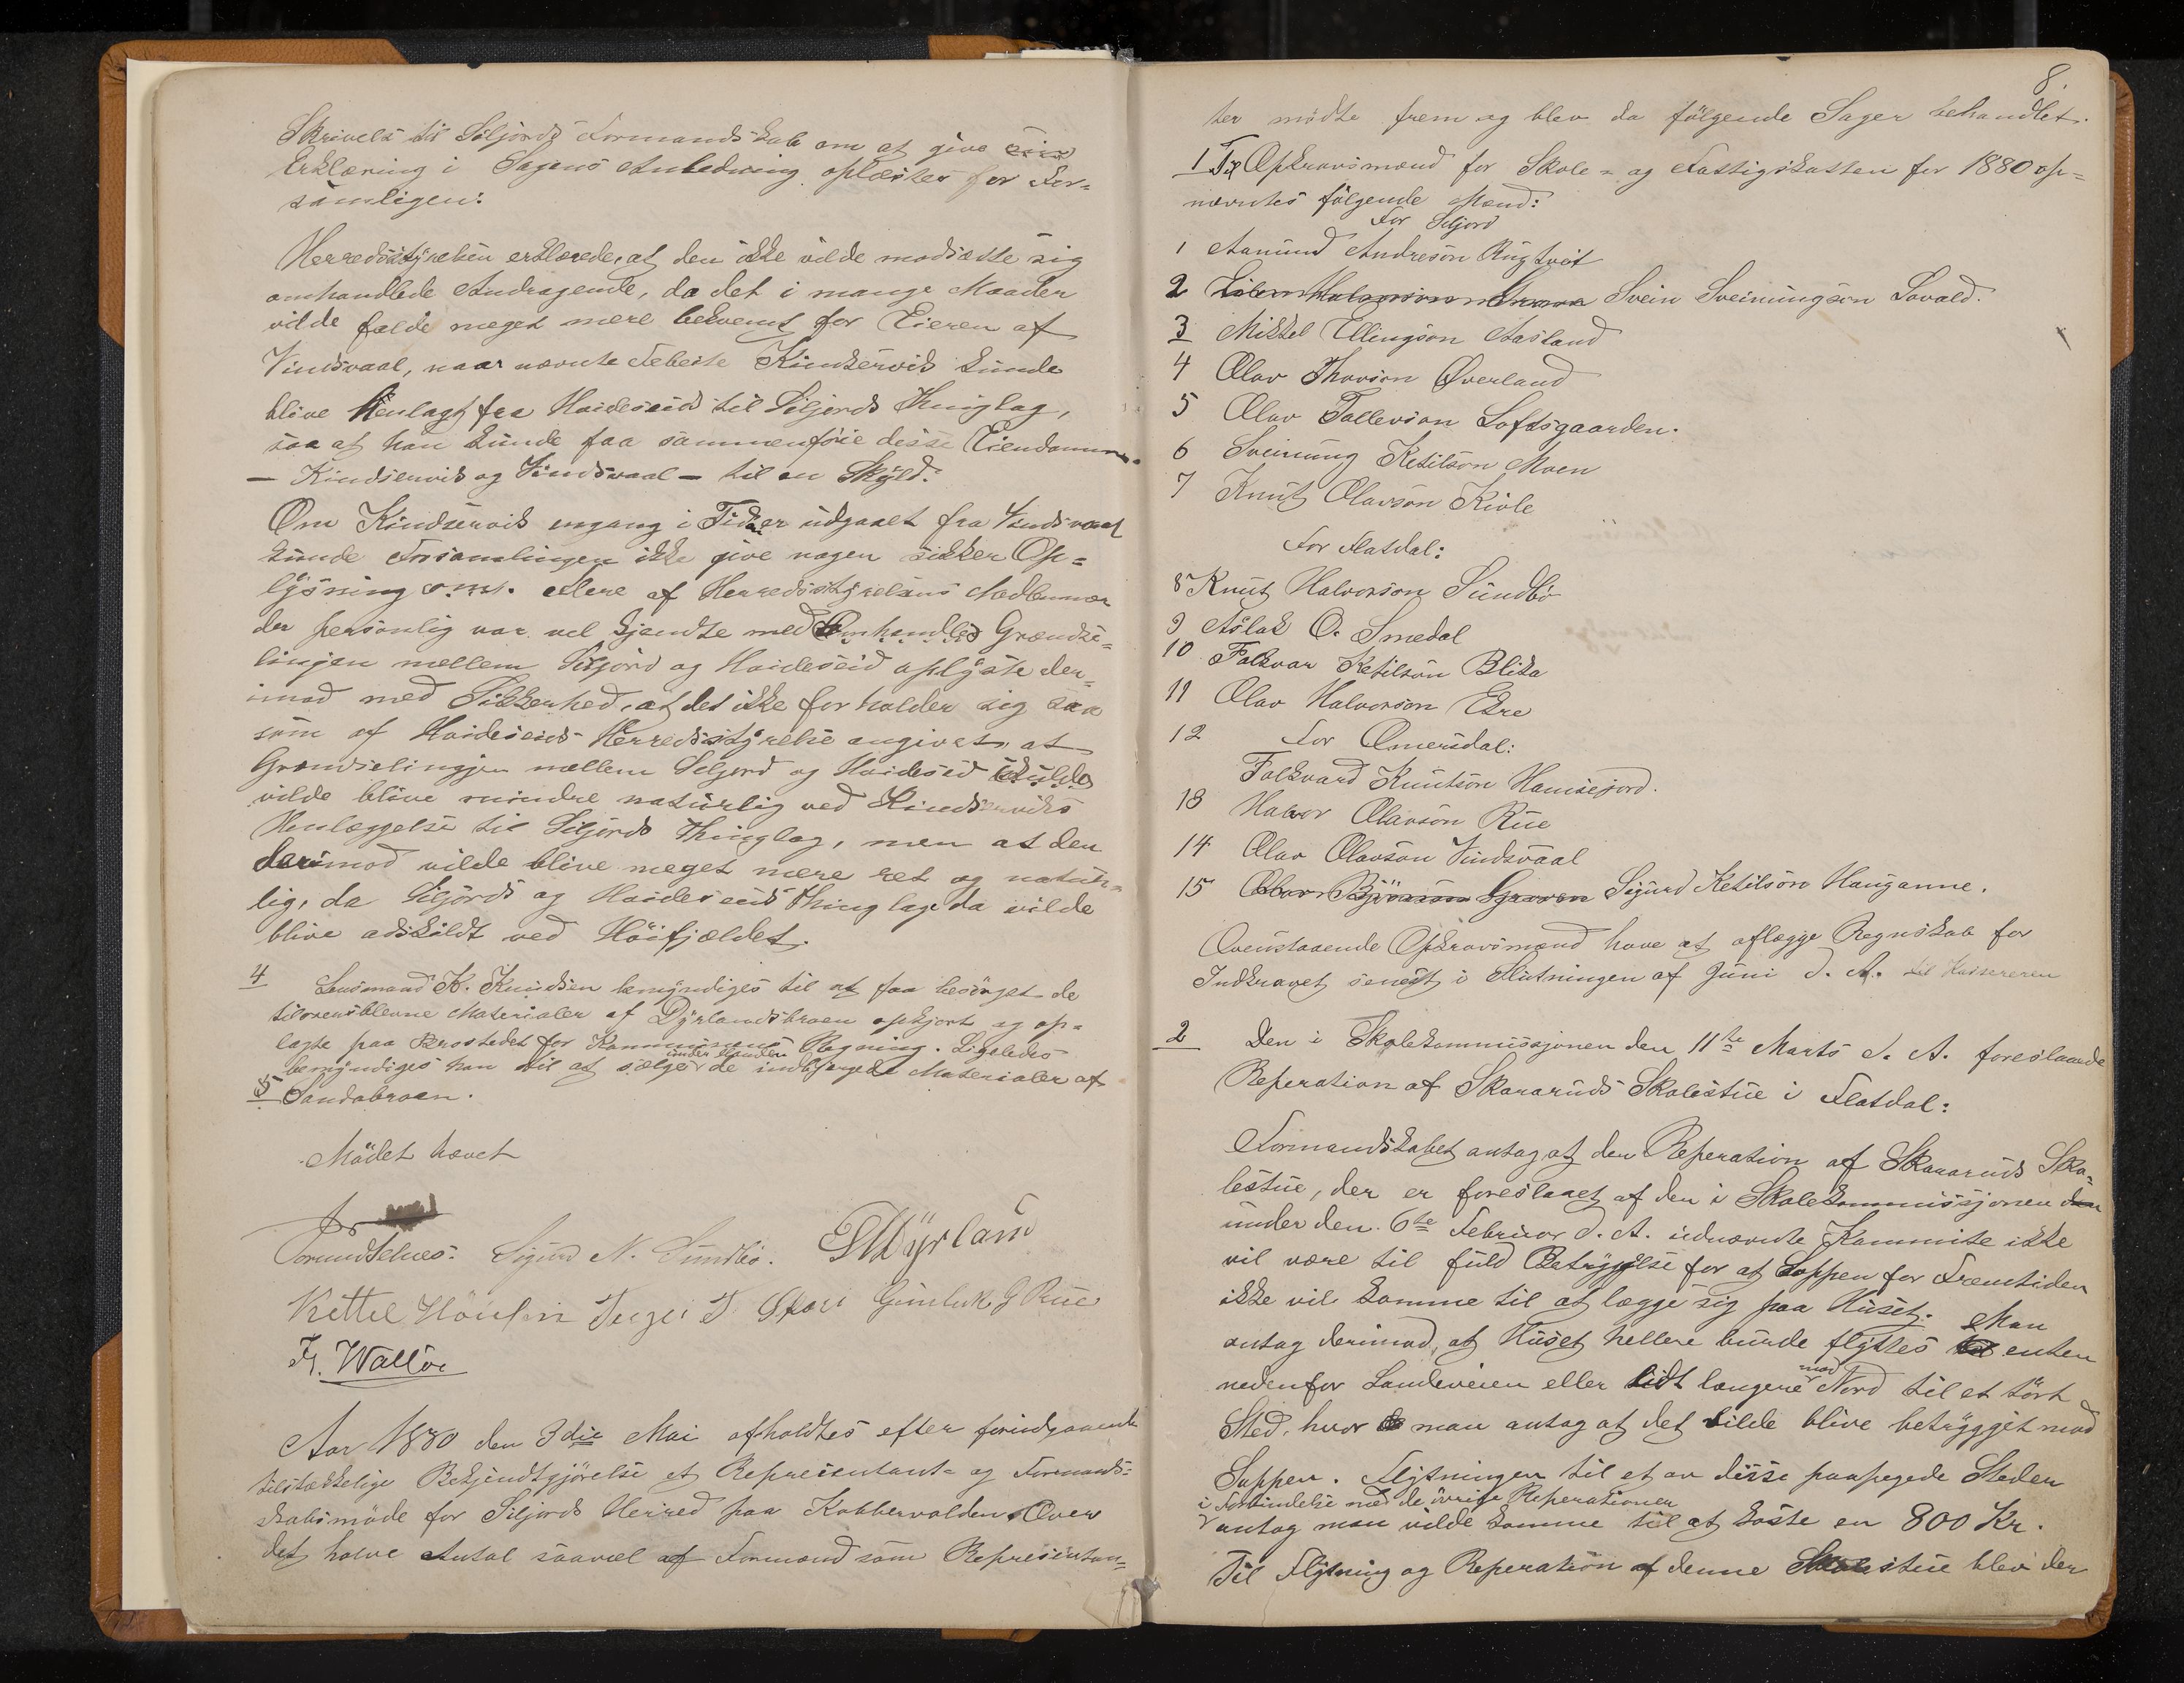 Skrivelse til Siljords Formandskab om at give sin
Erklæring i Sagens Anledning oplæstes for For-
samligen:
Herredsstyrelsen erklærede, at den ikke vilde modsætte sig
omhandlede Andragende, da det i mange Maader
vilde falde meget mere bekvemt for Eieren af
Vindsvaal, naar nævnte Kindservik kunde
blive henlagt fra Hvideseid til Siljords Thinglag,
saa at han kunde faa sammenføie disse Eiendomme
— Kindservik og Vindsvaal — til en Skyld.
Om Kindservik engang i Tiden er udgaaet fra Vindsvaal
kunde Forsamlingen ikke give nogen sikker Op-
lysning om. Flere af Herredsstyrelsens Medlemmer
der personlig var vel kjendte med omhandlede Grændse-
linjen mellem Siljord og Hvideseid oplyste der-
imod med Sikkerhed, at det ikke forholder sig saa
som af Hvideseids Herredsstyrelse angivet, at
Grændselingjen mellem Seljord og Hvideseid skulde
vilde blive mindre naturlig ved Kindserviks
Henlæggelse til Siljords Thinglag, men at den
derimod vilde blive meget mere ret og natur-
lig, da Siljords og Hvideseids Thinglag da vilde
blive adskildt ved Höifjældet.
4 Lensmand K. Knudsen bemyndiges til at faa besörget de
tiloversblevne Materialer af Dyrlandsbroen opkjørt og op-
lagte paa Brostedet for Kommunens Regning. Ligeledes
bemyndiges han til at sælge underhaanden de indbjergede Materialer af
5 Sundabroen.
Mödet hævet
Tormund Selnes. Sigurd N. Sundbö. Dyrland
Kettel Gunleik G Rue
Fr. Wallöe
Aar 1880 den 3die Mai afholdtes efter forindgaaende
tilstrækkelige Bekjendtgjörelse et Represientant- og Formands-
skabsmöde for Siljords Herred paa Kobbervolden. Over
det halve Antal saavel af Formænd som Represientan-
8.
ter mödte frem og blev da fölgende Sager behandlet.
1 Til Opkrævsmænd for Skole- og Fattigskatten for 1880 op-
nævntes fölgende Mænd:
For Siljord
1 Aanund Andreson Rugtveit
2 Svein Sveinungson Lovald.
3 Mikkel Ellingson Aasland
4 Olav Thovson Øverland
5 Olav Tollevson Loftsgaarden.
6 Sveinung Ketilson Moen
7 Knut Olavson Kivle
For Flatdal:
8 Knut Halvorson Sundbö
9 Aslak O. Smedal
10 Folkvar Ketilson Blika
11 Olav Halvorson Ekre
12 For Åmersdal:
Folkvard Knutson Hamsejord.
13 Halvor Olavson Rue
14 Olav Olavson Vindsvaal
15 Olav Björnson Graven Sigurd Ketilson Hauganne.
Ovenstaaende Opkrævsmænd have at aflægge Regnskab for
Indkrævet senest i Slutningen af Juni d. A. til Kassereren
2 Den i Skolekommissjonen den 11te Marts d. A. foreslaaede
Reperation af Skararuds Skolestue i Flatdal:
Formandskabet antag at den Reperation af Skararuds Sko-
lestue, der er foreslaaet af den i Skolekommissjonen den
under den 6te Februar d. A. udnævnte Kommite ikke
vil være til fuld Betryggelse for at Soppen for Fremtiden
ikke vil komme til at lægge sig paa Huset. Man
antag derimod, at Huset hellere burde flyttes til enten
nedenfor Landeveien eller lidt længere mod Nord til et tört
Sted, hvor man antag at det vilde blive betrygget mod
Soppen. Flytningen til et av disse paapegede Steder
i Forbindelse med de övrige Reperationer
antag man vilde komme til at koste en 800 Kr.
Til Flytning og Reperation af denne Skolestue blev der